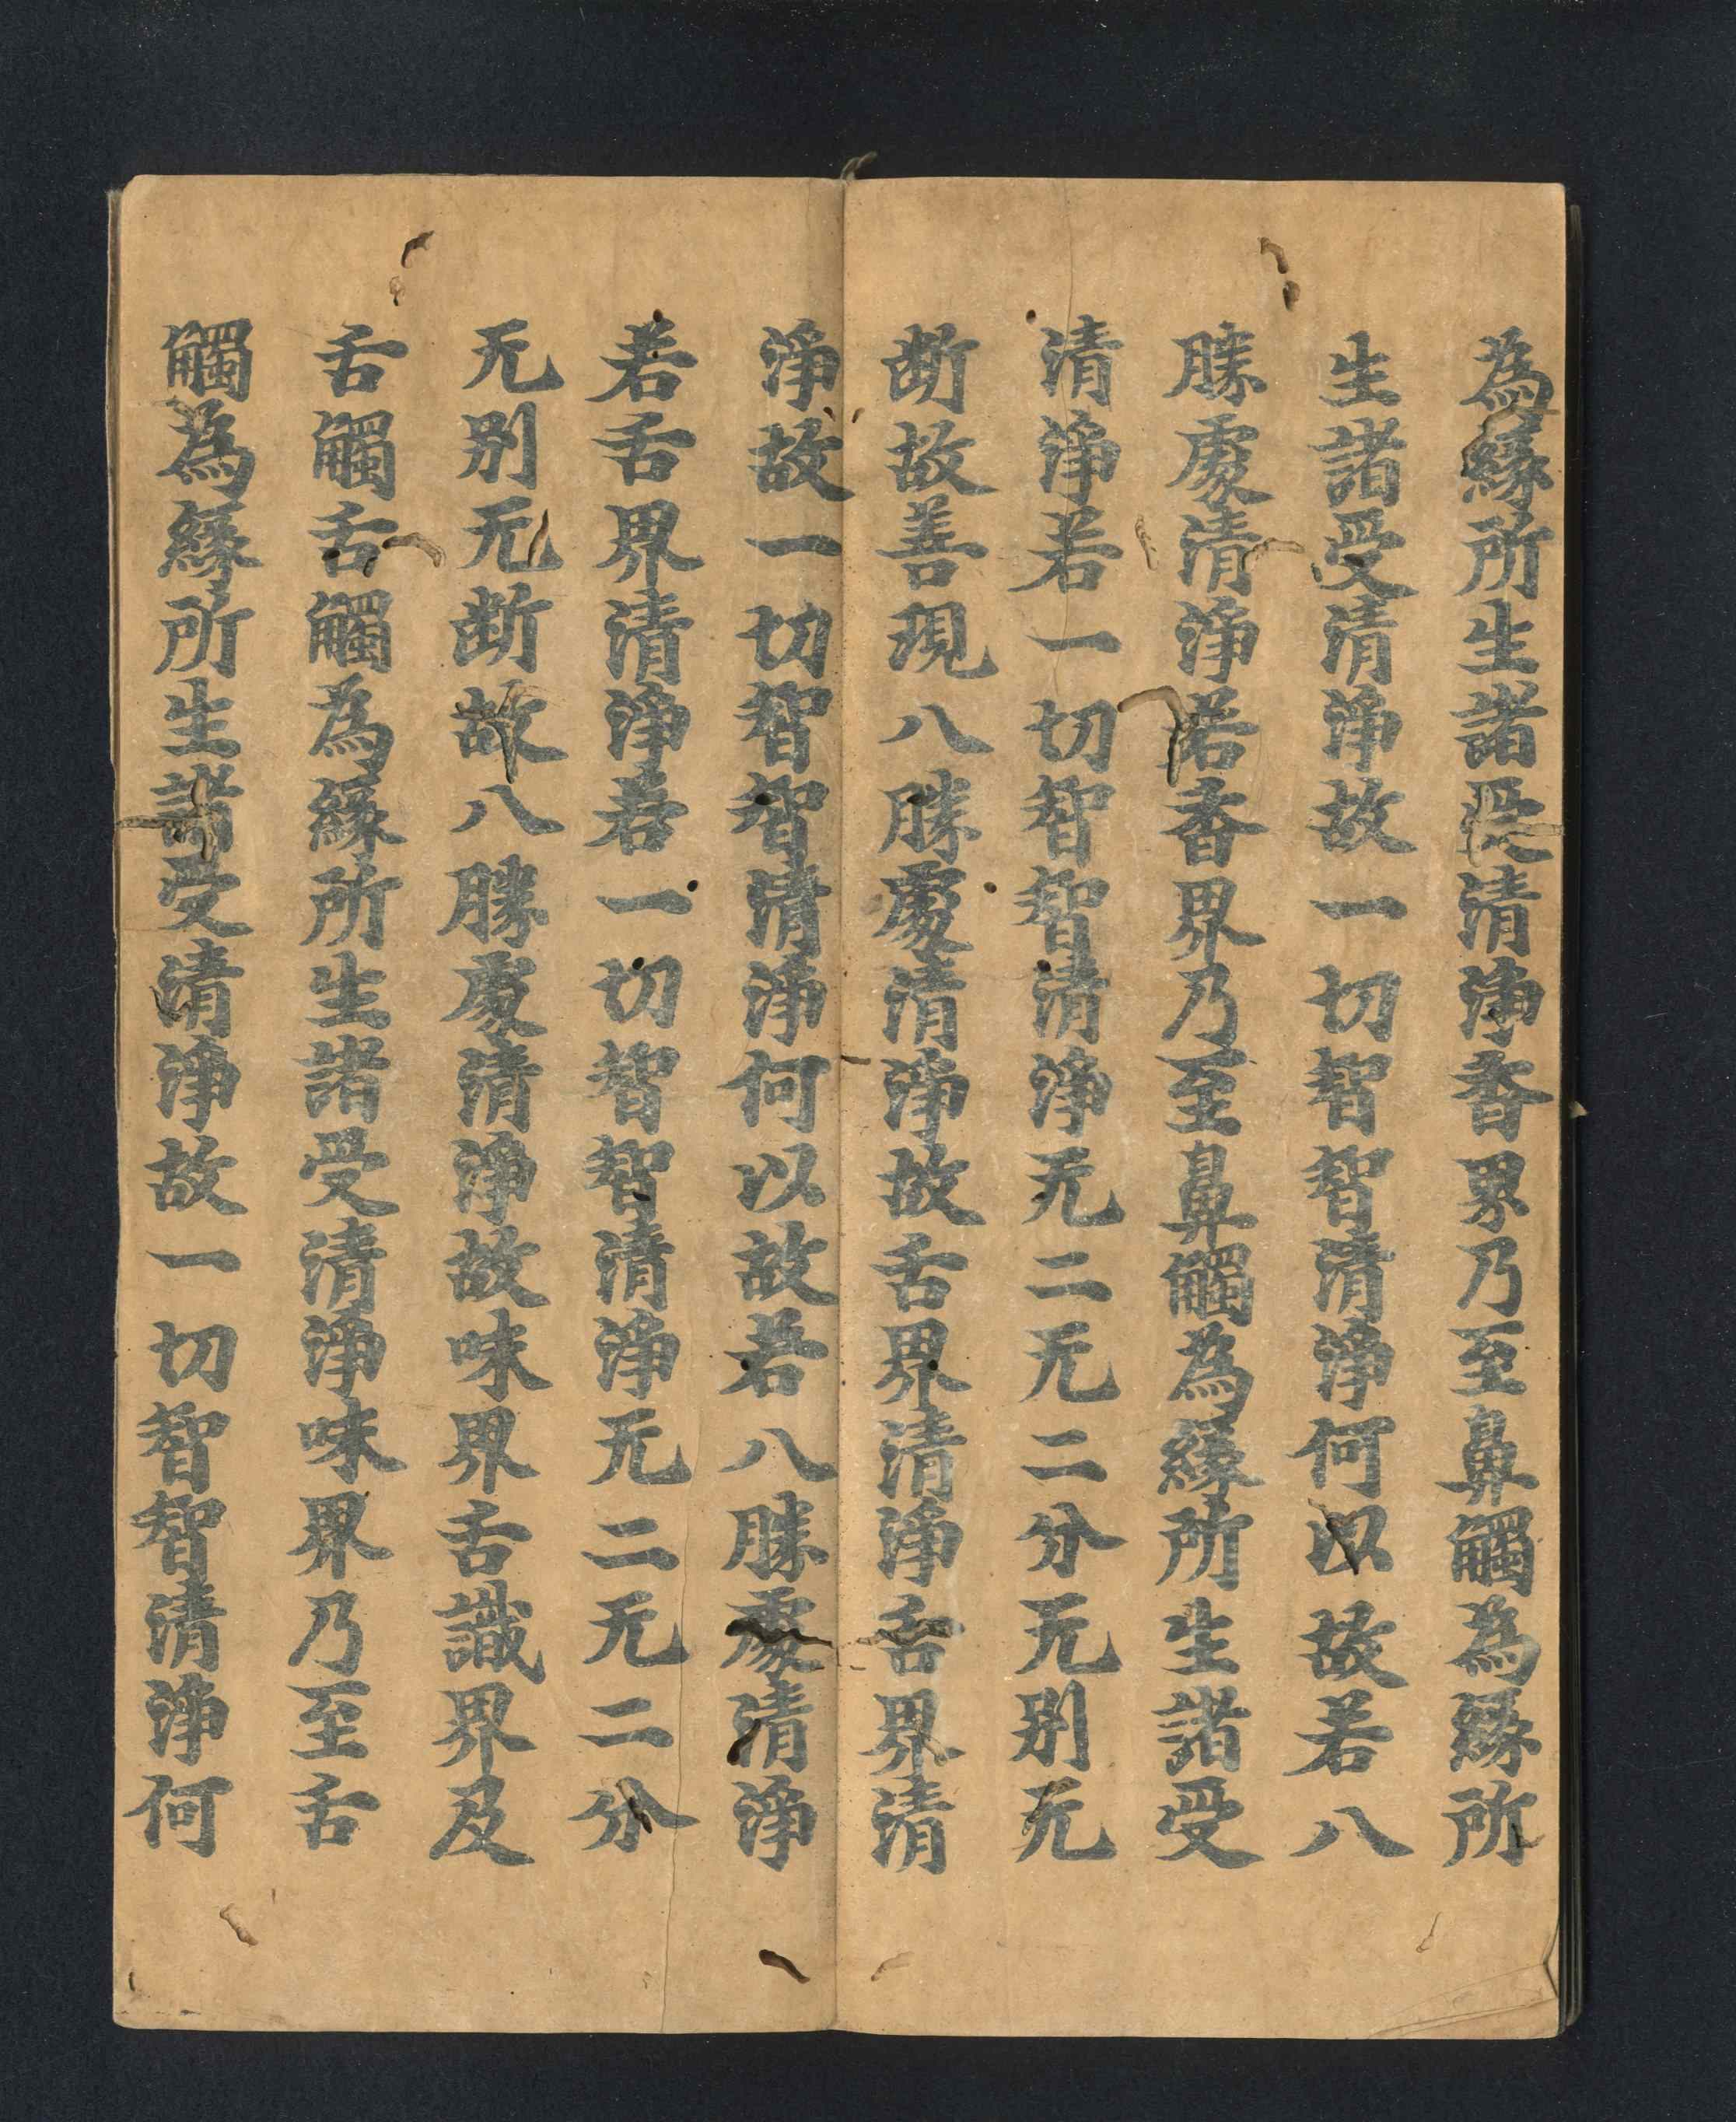 為緣所生諸受清淨香界乃至鼻觸為緣所
生諸受清淨故一切智智清淨何以故若八
勝處清淨若香界乃至鼻觸為緣所生諸受
清淨若一切智智清淨无二无二分无别无
断故善現八勝處清淨故舌界清淨舌界清
淨故一切智智清淨何以故若八勝處清淨
若舌界清淨若一切智智清淨无二无二分
无别无断故八勝處清淨故味界舌識界及
舌觸舌觸為緣所生諸受清淨味界乃至舌
觸為緣所生諸受清淨故一切智智清淨何